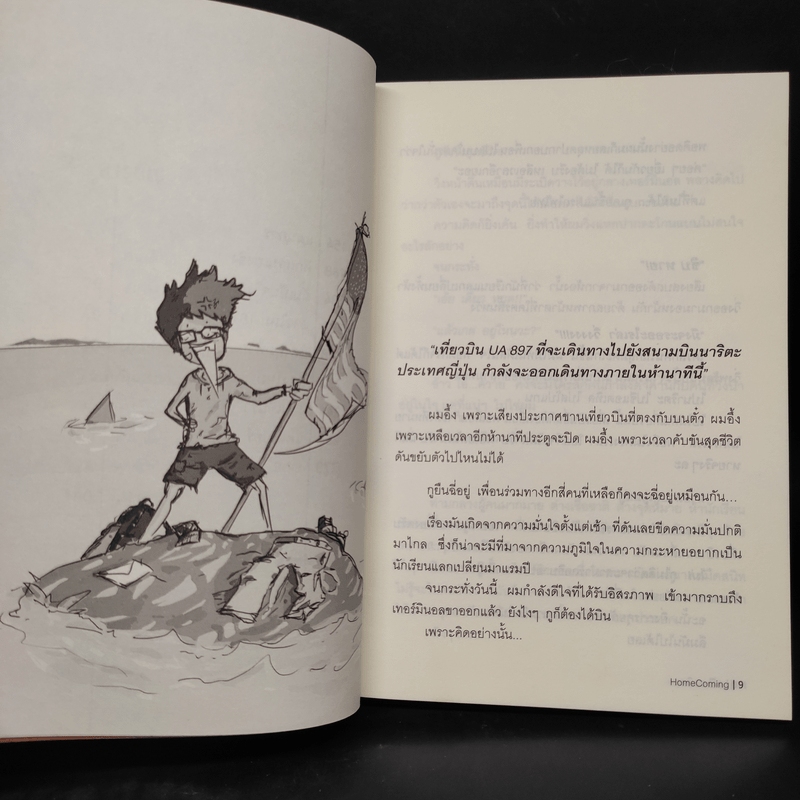 “เที่ยวบิน UA 897 ที่จะเดินทางไปยังสนามบินนาริตะ
ประเทศญี่ปุ่น กำลังจะออกเดินทางภายในห้านาทีนี้”
ผมอึ้ง เพราะเสียงประกาศขานเที่ยวบินที่ตรงกับบนตั๋ว ผมอึ้ง
เพราะเหลือเวลาอีกห้านาทีประตูจะปิด ผมอึ้ง เพราะเวลาคับขันสุดชีวิต
ดันขยับตัวไปไหนไม่ได้
กูยืนฉี่อยู่ เพื่อนร่วมทางอีกสี่คนที่เหลือก็คงจะฉี่อยู่เหมือนกัน...
เรื่องมันเกิดจากความมั่นใจตั้งแต่เช้า ที่ดันเลยขีดความมั่นปกติ
มาไกล ซึ่งก็น่าจะมีที่มาจากความภูมิใจในความกระหายอยากเป็น
นักเรียนแลกเปลี่ยนมาแรมปี
จนกระทั่งวันนี้ ผมกำลังดีใจที่ได้รับอิสรภาพ เข้ามากราบถึง
เทอร์มินอลขาออกแล้ว ยังไงๆ กูก็ต้องได้บิน
เพราะคิดอย่างนั้น...
HomeComing | 9